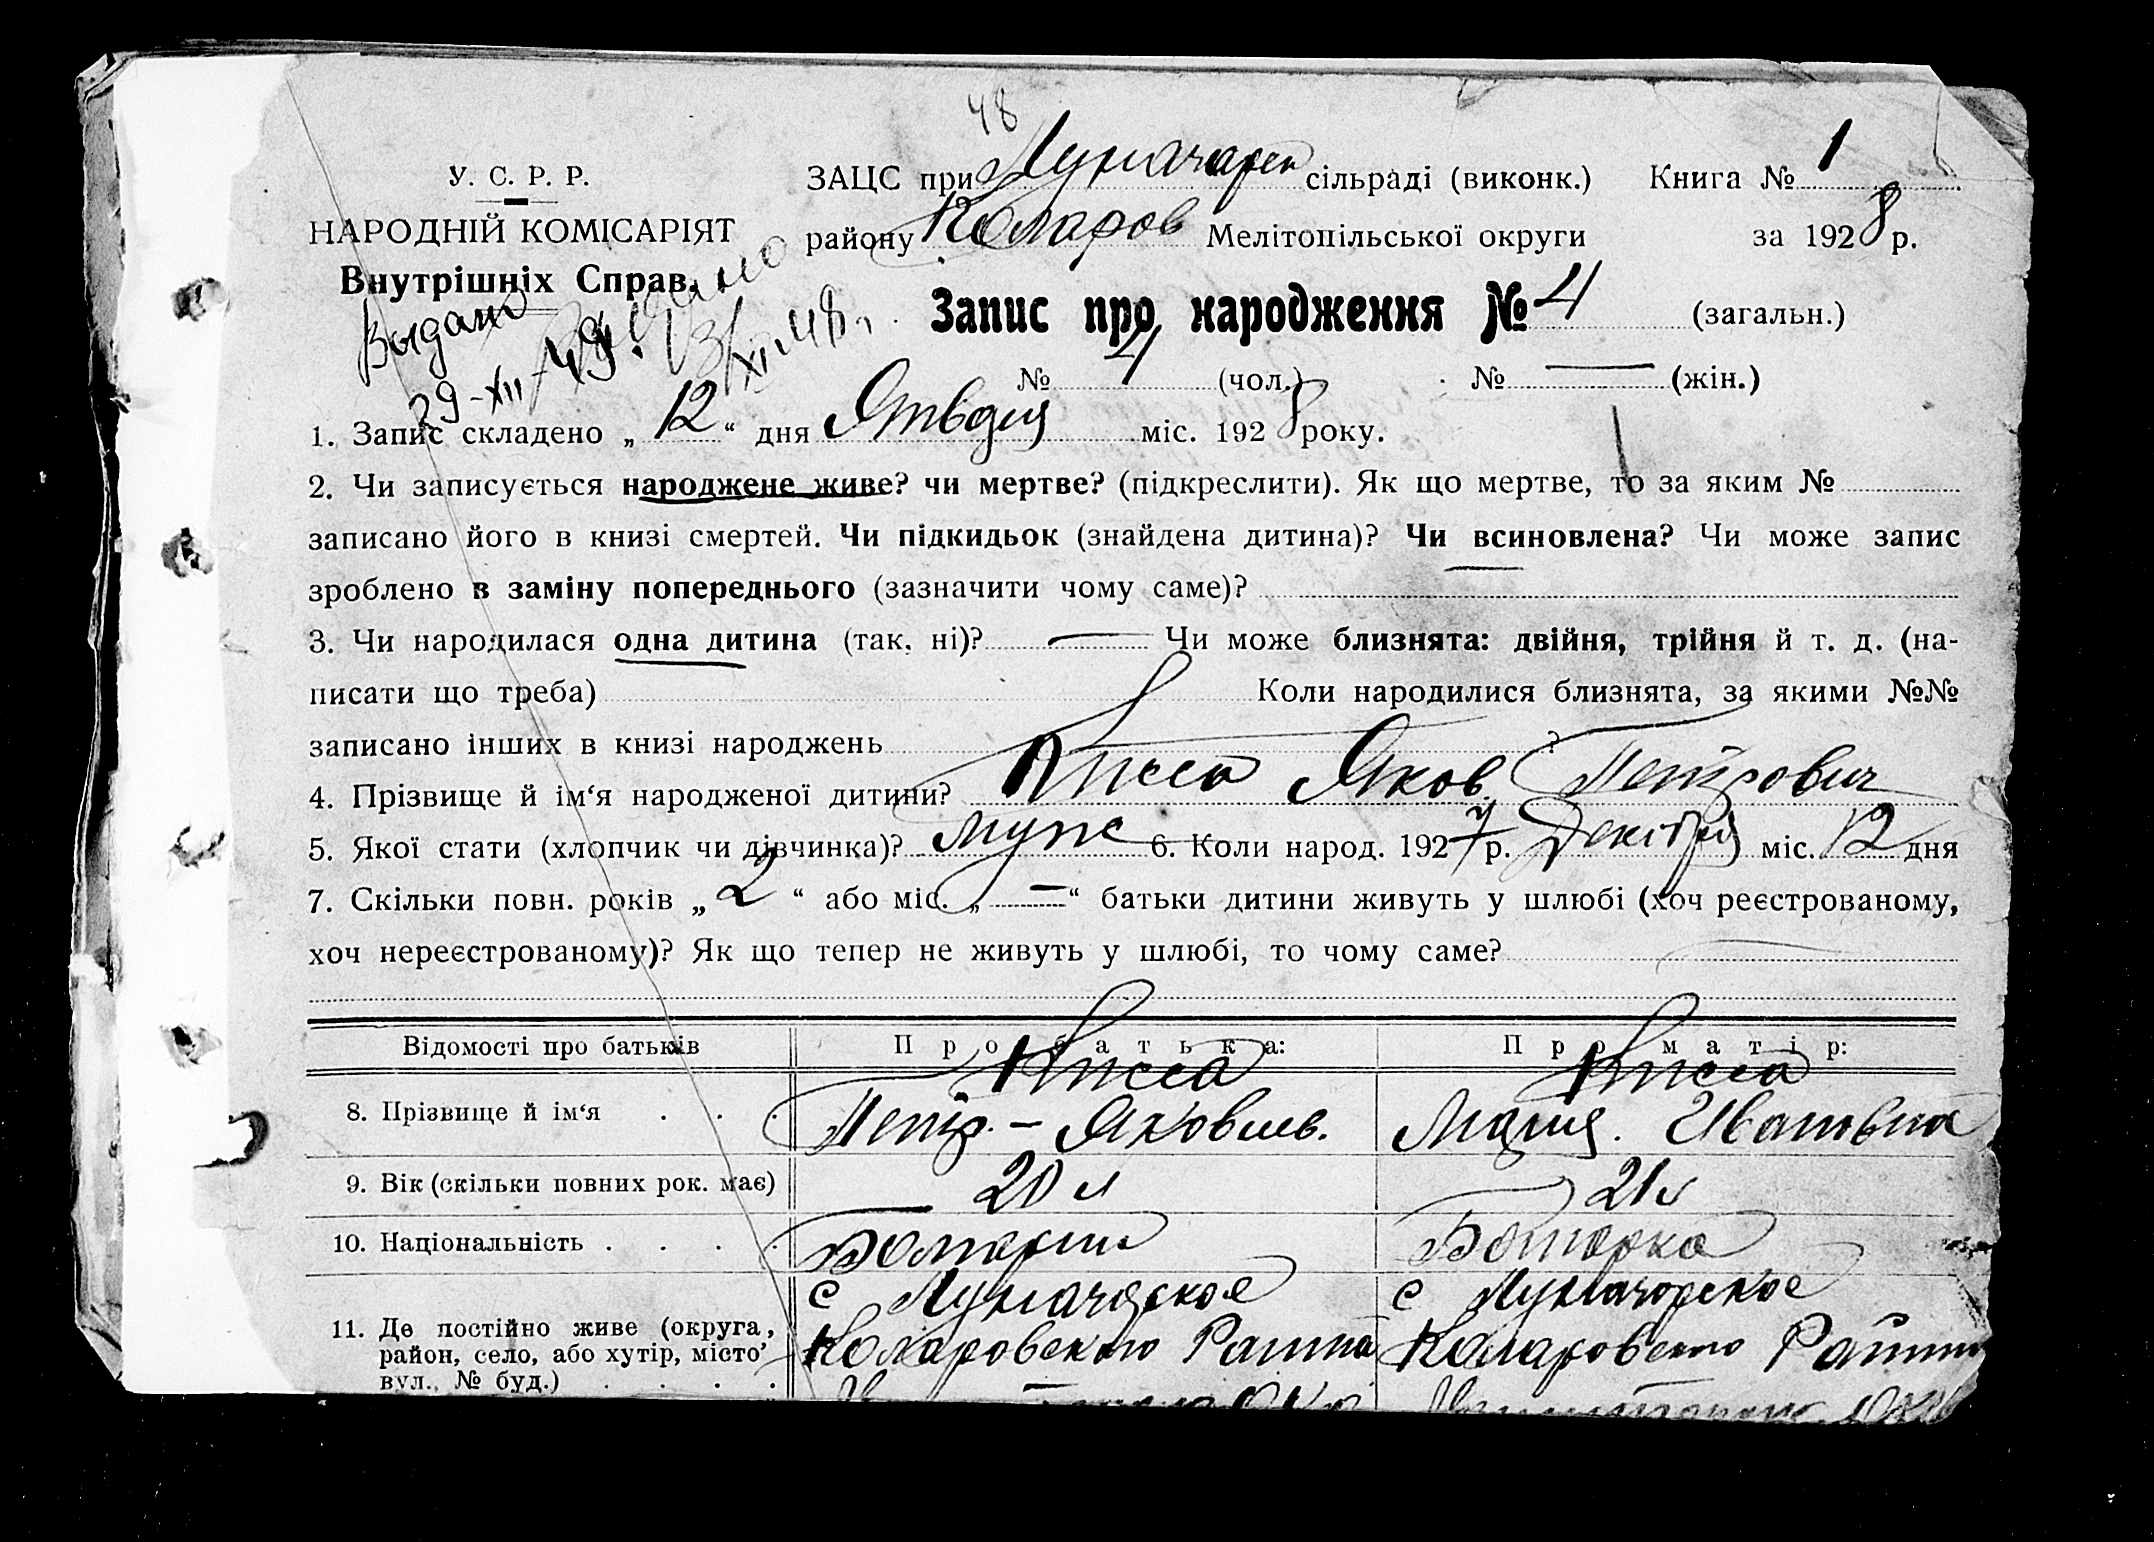 48
У. С. Р. Р. ЗАЦС при Луначарск сільраді (виконк.) Книга № 1
НАРОДНІЙ КОМІСАРІЯТ району Коларов Мелітопільської округи за 1928 р.
Внутрішніх Справ.
Выдано 29-XII-49. Выдано 13/XI-48г.
Запис про народження № 4 (загальн.)
№ 4 (чол.) № — (жін.)
1. Запис складено „ 12 “ дня Января міс. 1928 року.
2. Чи записується народжене живе? чи мертве? (підкреслити). Як що мертве, то за яким №
записано його в книзі смертей. Чи підкидьок (знайдена дитина)? Чи всиновлена? Чи може запис
зроблено в заміну попереднього (зазначити чому саме)?
3. Чи народилася одна дитина (так, ні)? — Чи може близнята: двійня, трійня й т. д. (на-
писати що треба) Коли народилися близнята, за якими №№
записано інших в книзі народжень ?
4. Прізвище й ім‘я народженої дитини? Кисса Яков Петрович
5. Якої стати (хлопчик чи дівчинка)? муж 6. Коли народ. 1927 р. Декабря міс. 12 дня
7. Скільки повн. років „ 2 “ або міс. „ — “ батьки дитини живуть у шлюбі (хоч реєстрованому,
хоч нереєстрованому)? Як що тепер не живуть у шлюбі, то чому саме?
Відомості про батьків Про батька: Про матір:
8. Прізвище й ім‘я . . . Кисса Петр. – Яковлев. Кисса Мария. Ивановна
9. Вік (скільки повних рок. має) 20 л 21 л
10. Національність . . . . Болгарин Болгарка
11. Де постійно живе (округа, с Луначарское с Луначарское
район, село, або хутір, місто, Коларовского Района Коларовского Района
вул., № буд.) . . . .